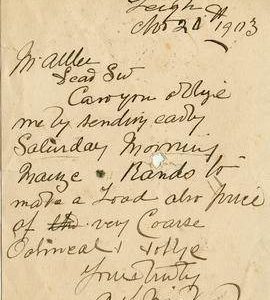 Leigh
Nov 20th 1903
Mr Allen
Dead Sir
Can you oblige
me by sending early
Saturday Morning
Maize & Rands to
make a Load also price
of the very Coarse
Oatmeal &
Yours truly